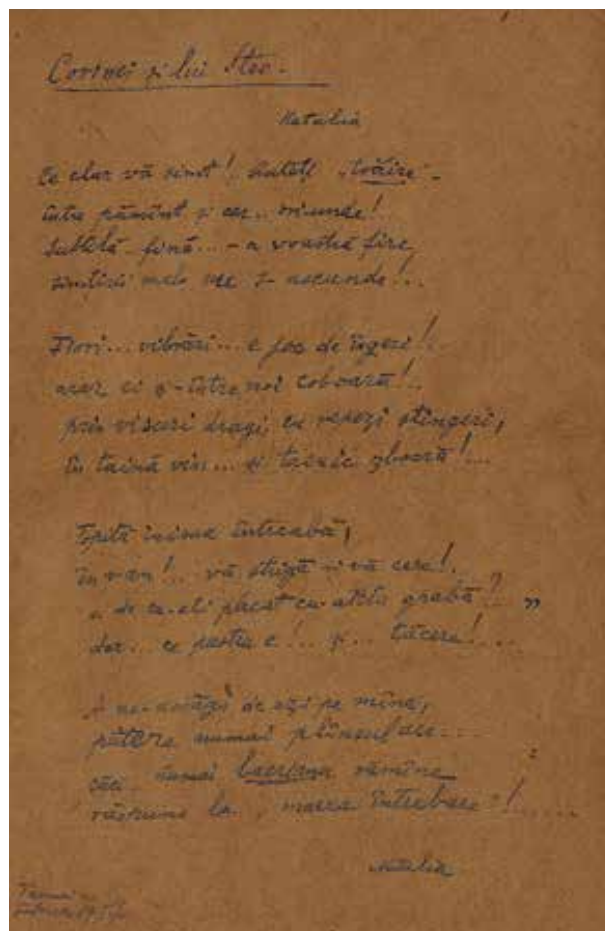 Corinei și lui Steo.
Natalia
Ce clar vă simt! "trăire" -
între pămînt și cer.. oriunde!
subtilă fină... - a voastră fire,
simțirii mele se ascunde!..
Flori... vibrări... e joc de îngeri!.
ei și-ntre noi coboară!..
prin visuri dragi, cu repezi stingeri,
în taină vin... și zboară!...
inima întreabă,
în van!.. vă strigă și vă cere!.
" de ce-ați plecat cu-atîta grabă?.. "
dar.. ce e!.. și... tăcere!....
de azi pe mîne,
putere numai plînsul are...
căci. numai lacrima rămîne
răspuns la.. marea întrebare!......
Natalia